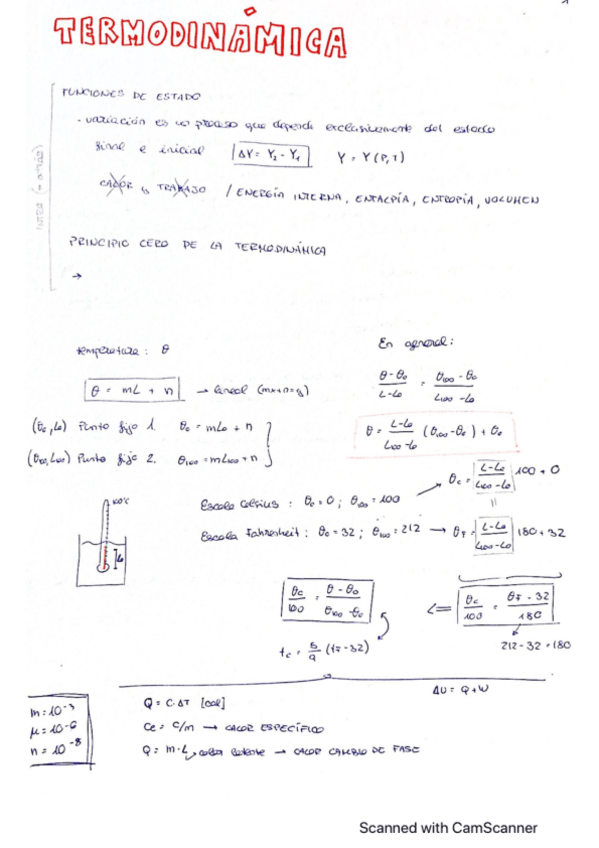 TERMODINÁMICA
FUNCIONES DE ESTADO
- variación es un proceso que depende exclusivamente del estado
final e inicial ΔY = Y₂ - Y₁ Y = Y(P,T)
CALOR y TRABAJO / ENERGÍA INTERNA, ENTALPÍA, ENTROPÍA, VOLUMEN
PRINCIPIO CERO DE LA TERMODINÁMICA
→
temperatura: θ
En general:
θ = mL + n → lineal (mx+n=y)
θ-θ₀/L-L₀ = θ₁₀₀-θ₀/L₁₀₀-L₀
(θ₀,L₀) Punto fijo 1. θ₀ = mL₀ + n
θ = L-L₀/L₁₀₀-L₀ (θ₁₀₀-θ₀) + θ₀
(θ₁₀₀,L₁₀₀) Punto fijo 2. θ₁₀₀ = mL₁₀₀ + n
θc = L-L₀/L₁₀₀-L₀ 100 + 0
Escala Celsius: θ₀ = 0; θ₁₀₀ = 100
=
Escala Fahrenheit: θ₀ = 32; θ₁₀₀ = 212 → θF = L-L₀/L₁₀₀-L₀ 180 + 32
100°C
L₀
θc/100 = θ-θ₀/θ₁₀₀-θ₀
<= θc/100 = θF-32/180
tc = 5/9 (tF-32)
212-32=180
ΔU = Q+W
m = 10⁻³
μ = 10⁻⁶
n = 10⁻⁸
Q = C·ΔT [cal]
Ce = C/m → CALOR ESPECÍFICO
Q = m·L calor latente → CALOR CAMBIO DE FASE
Scanned with CamScanner